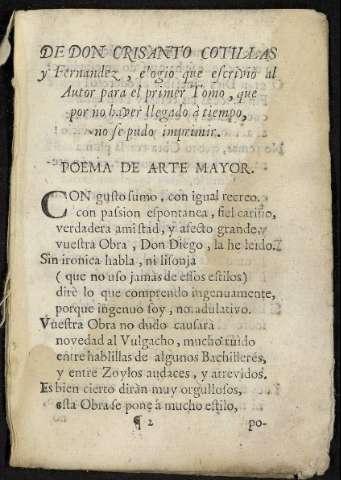 DE DON CRISANTO COTILLAS
y Fernandez, elogio que escriviò al
Autor para el primer Tomo, que
por no haver llegado à tiempo,
no se pudo imprimir.
POEMA DE ARTE MAYOR.
CON gusto sumo, con igual recreo,
con passion espontanea, fiel cariño,
verdadera amistad, y afecto grande,
vuestra Obra, Don Diego, la he leido.
Sin ironica habla, ni lisonja
(que no uso jamàs de essos estilos)
dirè lo que comprendo ingenuamente,
porque ingenuo soy, no adulativo.
Vuestra Obra no dudo causarà
novedad al Vulgacho, mucho ruido
entre hablillas de algunos Bachillerés,
y entre Zoylos audaces, y atrevidos.
Es bien cierto diràn muy orgullosos,
esta Obra se pone à mucho estilo,
¶ 2 po-